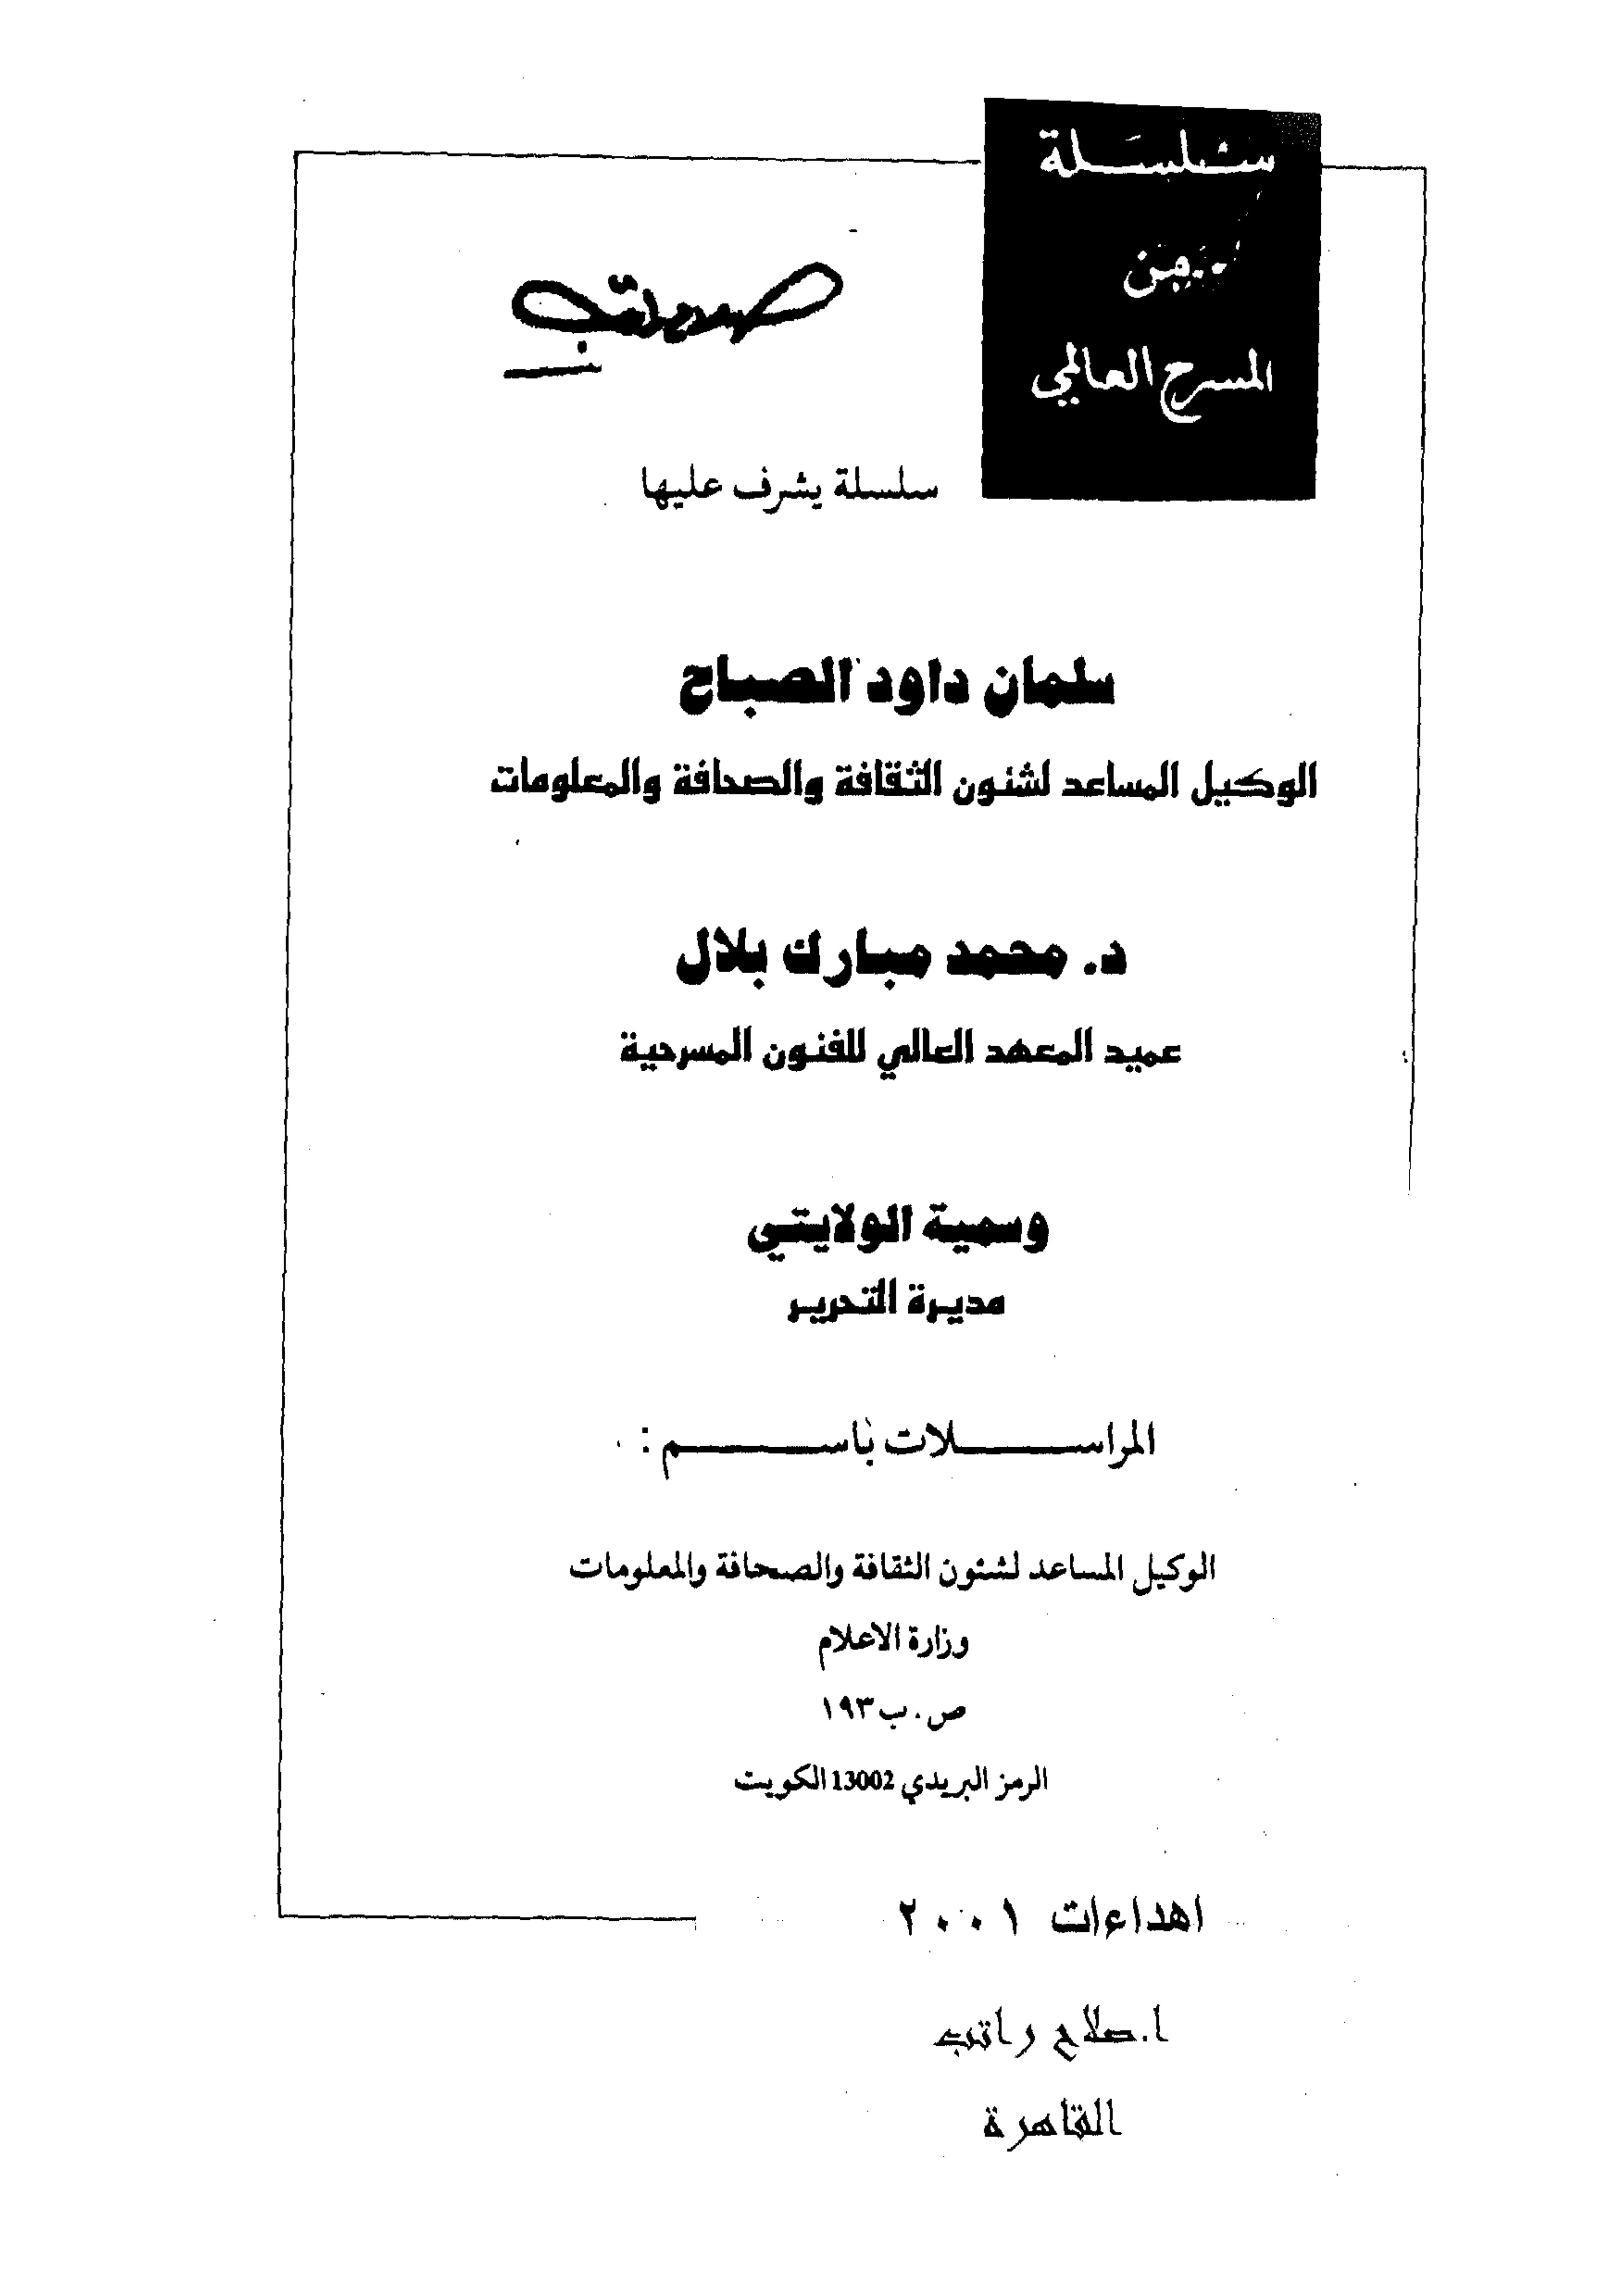 سلسلة
من
المسرح العالمي
سلسلة يشرف عليها
سلمان داود الصباح
الوكيل المساعد لشئون الثقافة والصحافة والمعلومات
د. محمد مبارك بلال
عميد المعهد العالي للفنون المسرحية
وسمية الولايتي
مديرة التحرير
المراسلات باسم :
الوكيل المساعد لشئون الثقافة والصحافة والمعلومات
وزارة الاعلام
ص . ب ١٩٣
الرمز البريدي 13002 الكويت
اهداءات ٢٠٠١
ا.صلاح راتب
القاهرة